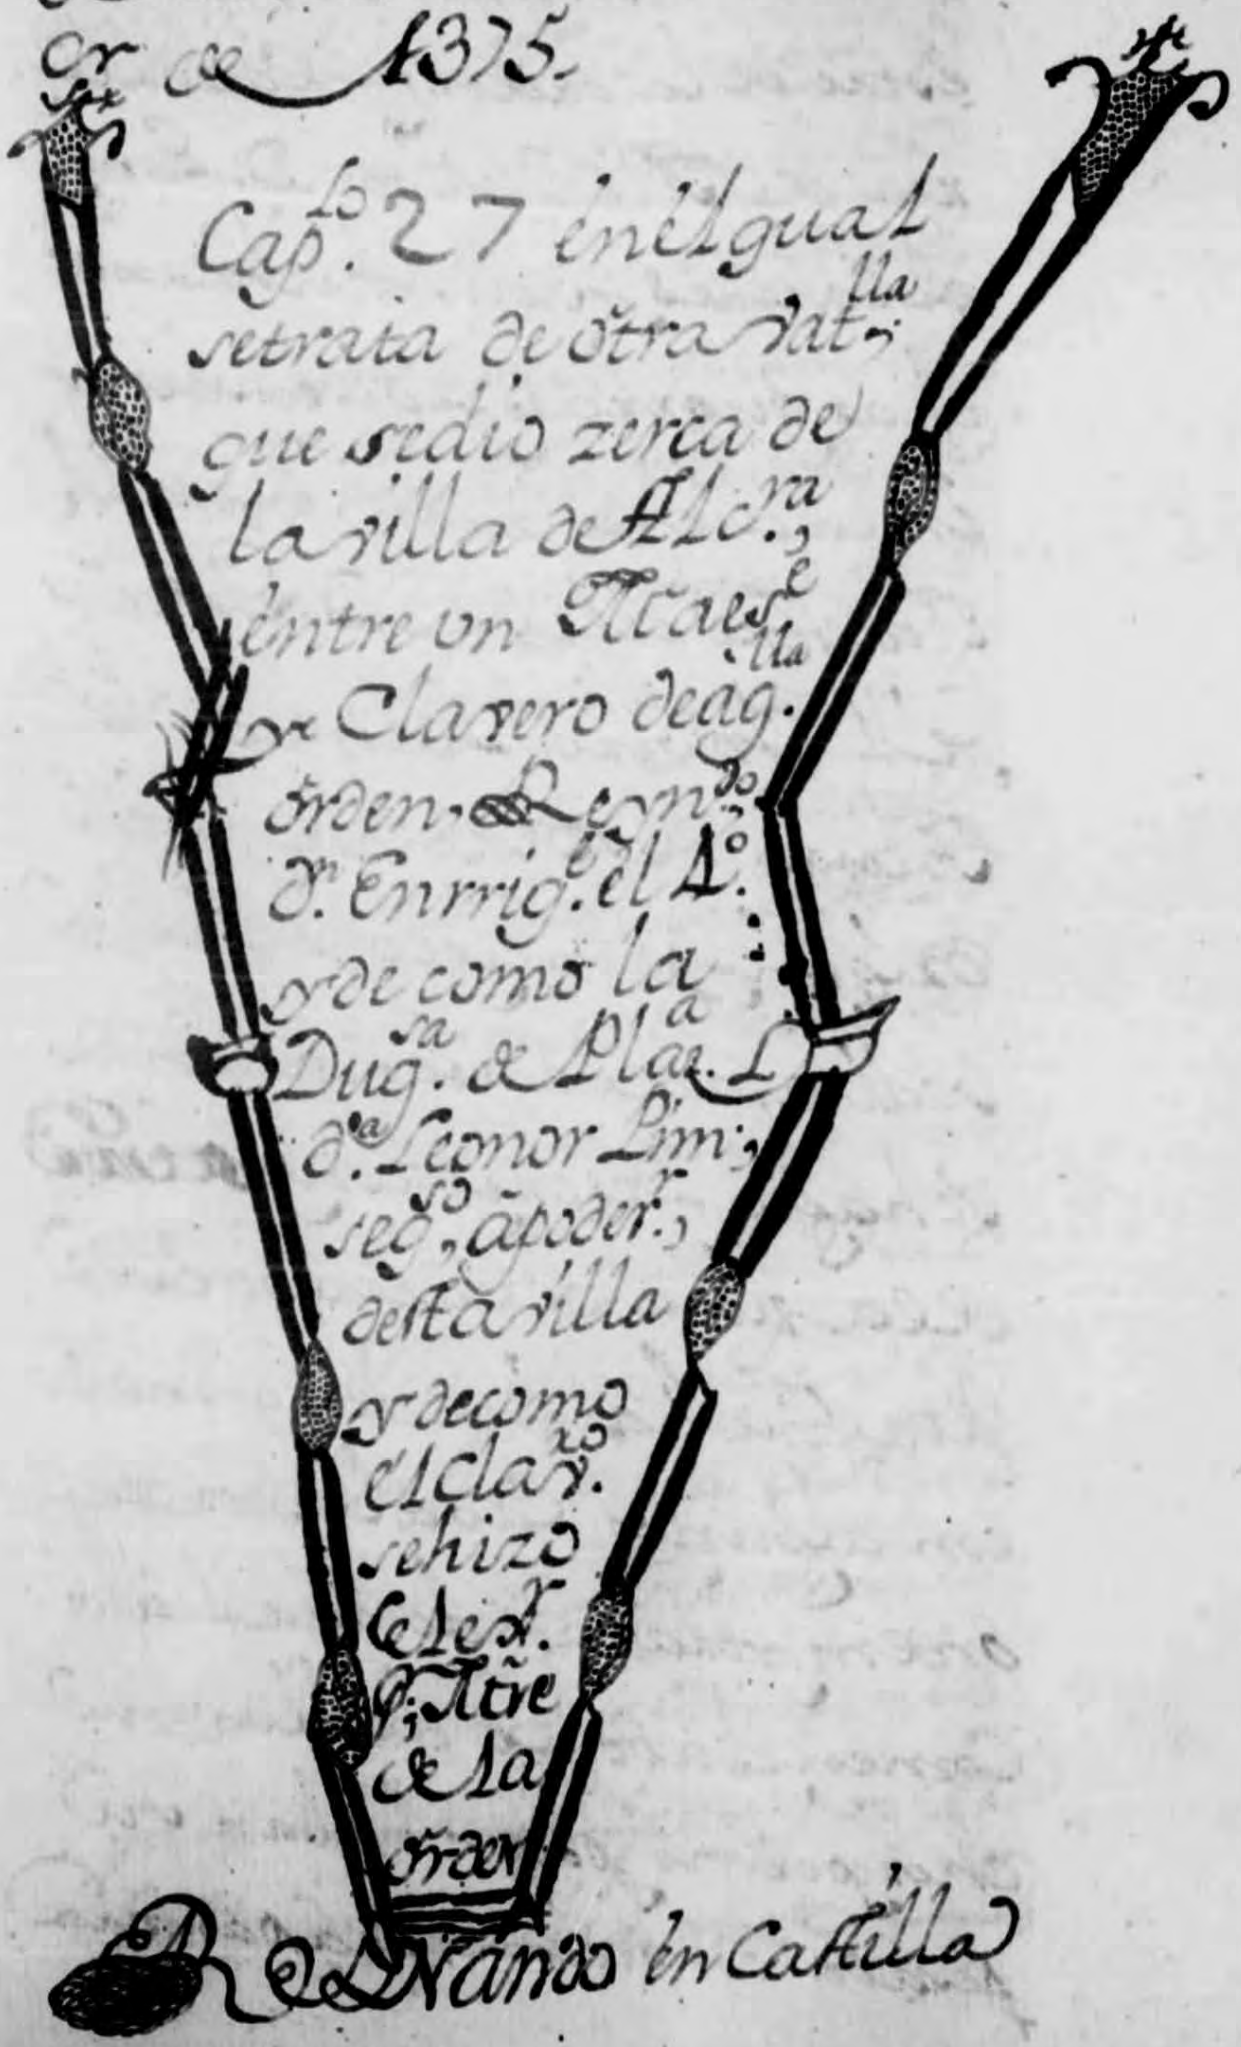 or de 1375.
Cap.lo 27 en el qual
se trata de otra vat.lla;
que se dio zerca de
la villa de Alc.ra,
entre un Maese
y Clavero de aq.lla
orden, Reyn.do
dn. Enrriq.e el 4o.
y de como la
Duq.sa de Plaz.a
d.a Leonor Pim;
seg.so, apoder.r,
desta villa
y de como
el Clav.ro
se hizo
elex.r
p; Mtre
de la
orden
REYNando en Castilla